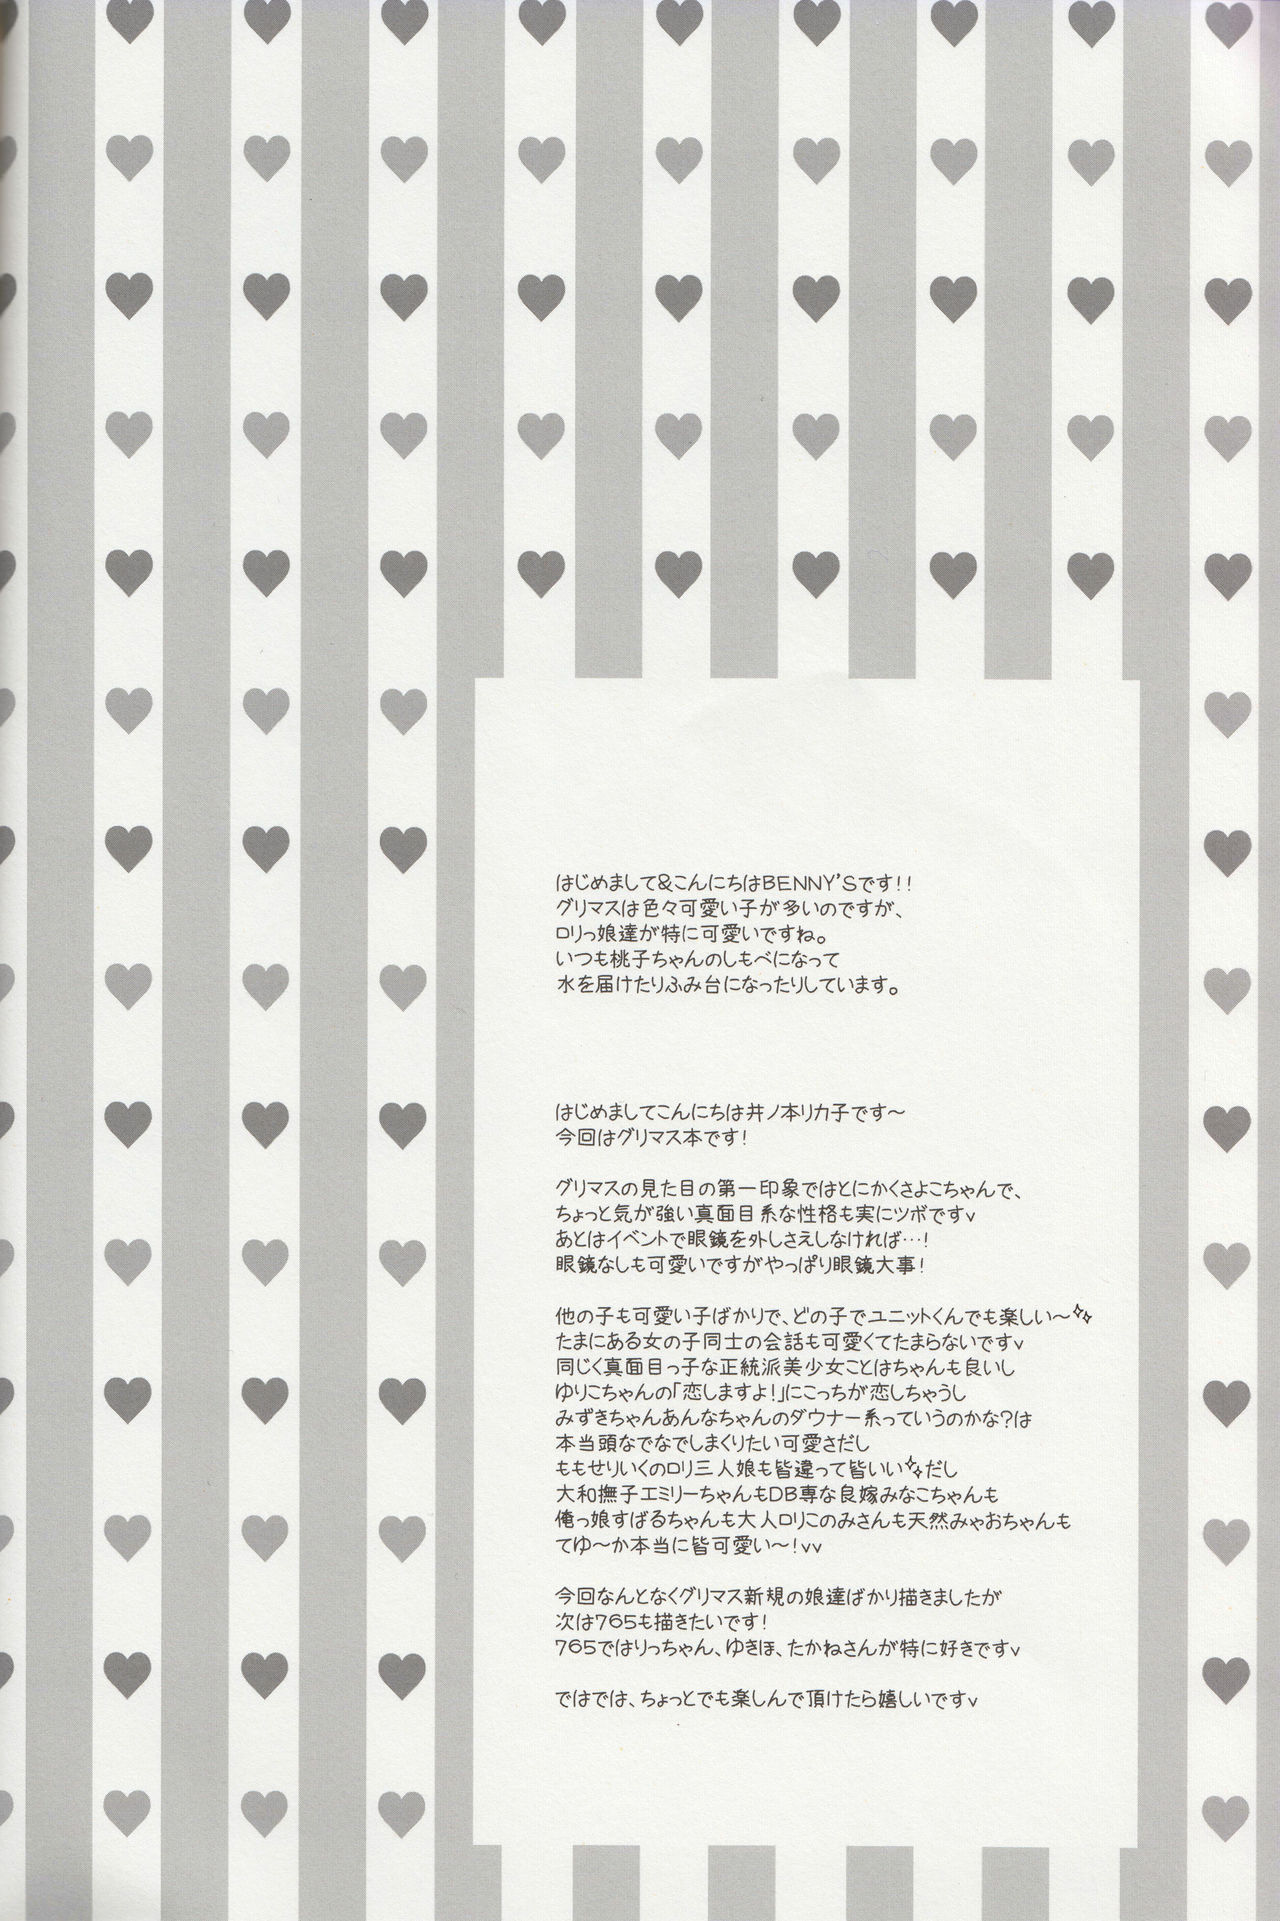 はじめまして&こんにちはBENNY'Sです!!
グリマスは色々可愛い子が多いのですが、
ロリっ娘達が特に可愛いですね。
いつも桃子ちゃんのしもべになって
水を届けたりふみ台になったりしています。
はじめましてこんにちは井ノ本リカ子です〜
今回はグリマス本です!
グリマスの見た目の第一印象ではとにかくさよこちゃんで、
ちょっと気が強い真面目系な性格も実にツボですv
あとはイベントで眼鏡を外しさえしなければ…!
眼鏡なしも可愛いですがやっぱり眼鏡大事!
他の子も可愛い子ばかりで、どの子でユニットくんでも楽しい〜✨
たまにある女の子同士の会話も可愛くてたまらないですv
同じく真面目っ子な正統派美少女ことはちゃんも良いし
ゆりこちゃんの「恋しますよ!」にこっちが恋しちゃうし
みずきちゃんあんなちゃんのダウナー系っていうのかな?は
本当頭なでなでしまくりたい可愛さだし
ももせりいくのロリ三人娘も皆違って皆いい✨だし
大和撫子エミリーちゃんもDB専な良嫁みなこちゃんも
俺っ娘すばるちゃんも大人ロリこのみさんも天然みゃおちゃんも
てゆ〜か本当に皆可愛い〜!vv
今回なんとなくグリマス新規の娘達ばかり描きましたが
次は765も描きたいです!
765ではりっちゃん、ゆきほ、たかねさんが特に好きですv
ではでは、ちょっとでも楽しんで頂けたら嬉しいですv